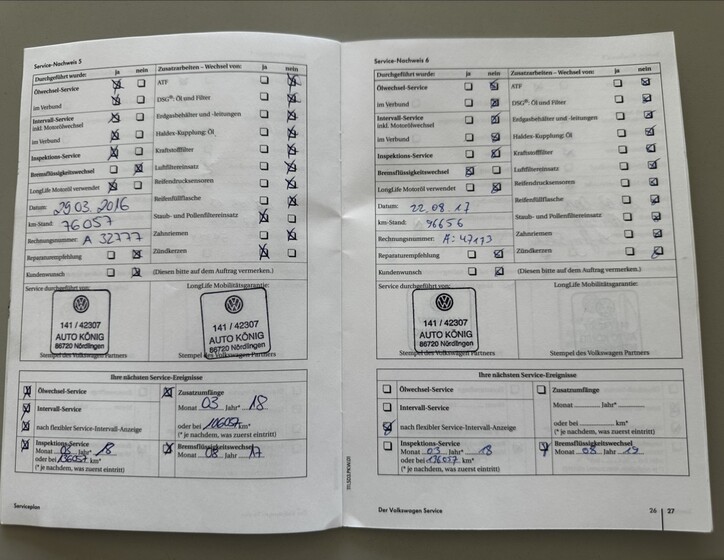 Service-Nachweis 5
Durchgeführt wurde: ja nein
Ölwechsel-Service
im Verbund
Intervall-Service
inkl. Motorölwechsel
im Verbund
Inspektions-Service
Bremsflüssigkeitswechsel
LongLife Motoröl verwendet
Datum: 29.03.2016
km-Stand: 76057
Rechnungsnummer: A 32777
Reparaturempfehlung
Kundenwunsch
Zusatzarbeiten – Wechsel von: ja nein
ATF
DSG®: Öl und Filter
Erdgasbehälter und -leitungen
Haldex-Kupplung: Öl
Kraftstofffilter
Luftfiltereinsatz
Reifendrucksensoren
Reifenfüllflasche
Staub- und Pollenfiltereinsatz
Zahnriemen
Zündkerzen
(Diesen bitte auf dem Auftrag vermerken.)
Service durchgeführt von:
141 / 42307
AUTO KÖNIG
86720 Nördlingen
Stempel des Volkswagen Partners
141 / 42307
AUTO KÖNIG
86720 Nördlingen
Stempel des Volkswagen Partners
Ihre nächsten Service-Ereignisse
Ölwechsel-Service
Intervall-Service
nach flexibler Service-Intervall-Anzeige
Inspektions-Service
Monat 03 Jahr* 18
oder bei 136057 km*
(* je nachdem, was zuerst eintritt)
Zusatzumfänge
Monat 03 Jahr* 18
oder bei km*
(* je nachdem, was zuerst eintritt)
Bremsflüssigkeitswechsel
Monat 08 Jahr 17
Serviceplan
Service-Nachweis 6
Durchgeführt wurde: ja nein
Ölwechsel-Service
im Verbund
Intervall-Service
inkl. Motorölwechsel
im Verbund
Inspektions-Service
Bremsflüssigkeitswechsel
LongLife Motoröl verwendet
Datum: 22.08.17
km-Stand: 96656
Rechnungsnummer: A: 47173
Reparaturempfehlung
Kundenwunsch
Zusatzarbeiten – Wechsel von: ja nein
ATF
DSG®: Öl und Filter
Erdgasbehälter und -leitungen
Haldex-Kupplung: Öl
Kraftstofffilter
Luftfiltereinsatz
Reifendrucksensoren
Reifenfüllflasche
Staub- und Pollenfiltereinsatz
Zahnriemen
Zündkerzen
(Diesen bitte auf dem Auftrag vermerken.)
Service durchgeführt von:
141 / 42307
AUTO KÖNIG
86720 Nördlingen
Stempel des Volkswagen Partners
LongLife Mobilitätsgarantie:
Stempel des Volkswagen Partners
Ihre nächsten Service-Ereignisse
Ölwechsel-Service
Intervall-Service
nach flexibler Service-Intervall-Anzeige
Inspektions-Service
Monat 03 Jahr* 18
oder bei 136057 km*
(* je nachdem, was zuerst eintritt)
Zusatzumfänge
Monat Jahr*
oder bei km*
(* je nachdem, was zuerst eintritt)
Bremsflüssigkeitswechsel
Monat 08 Jahr 19
Der Volkswagen Service
26 27